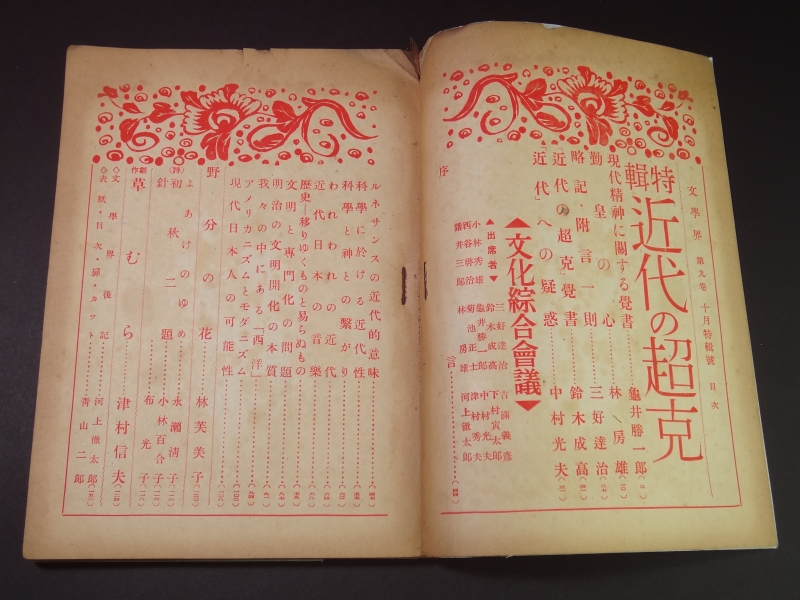 文學界 第九卷 十月特輯號 目次
特輯 近代の超克
現代精神に關する覺書 龜井勝一郎
勤皇の心 林房雄
略記・附言一則 三好達治
「近代の超克」覺書 鈴木成高
「近代」への疑惑 中村光夫
文化綜合會議
▲出席者▼
小林秀雄
西谷啓治
諸井三郎
三好達治
鈴木成高
龜井勝一郎
菊池正士
林房雄
吉滿義彦
下村寅太郎
中村光夫
津村秀夫
河上徹太郎
序言
ルネサンスの近代的意味
科學に於ける近代性
科學と神との繋がり
われわれの近代
近代日本の音樂
歷史―移りゆくものと易らぬもの
文明と專門化の問題
明治の文明開化の本質
我々の中にある「西洋」
アメリカニズムとモダニズム
現代日本人の可能性
野分の花 林芙美子
(詩) よあけのゆめ 永瀨淸子
初秋二題 小林百合子
針 布光子
創作 草むら 津村信夫
◇文學界後記 河上徹太郎
◇表紙・目次・扉・カット 靑山二郎